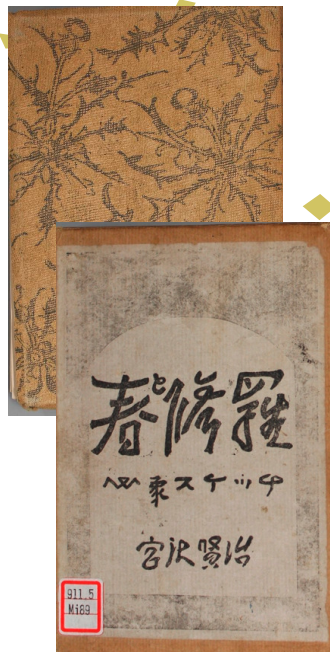 春と修羅
心象スケッチ
宮沢賢治
911.5
Mi89